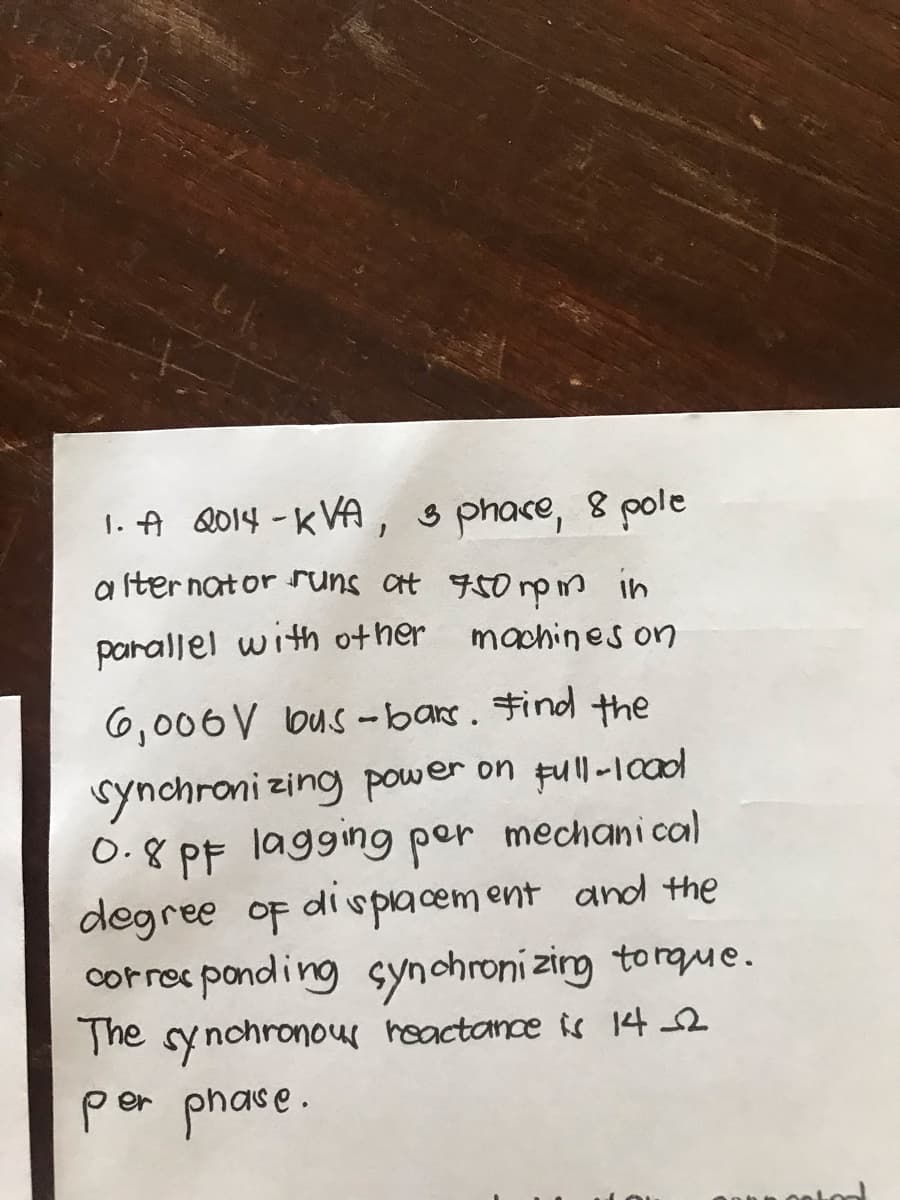 1. A 2014-KVA, 3 phase, 8 pole
alternator runs at 750 rpm in
parallel with other machines on
6,006V bus-bars. Find the
synchronizing power on full-load
0.8 PF lagging per mechanical
degree of displacement and the
corresponding synchronizing torque.
The synchronous reactance is 14 Ω
per phase.